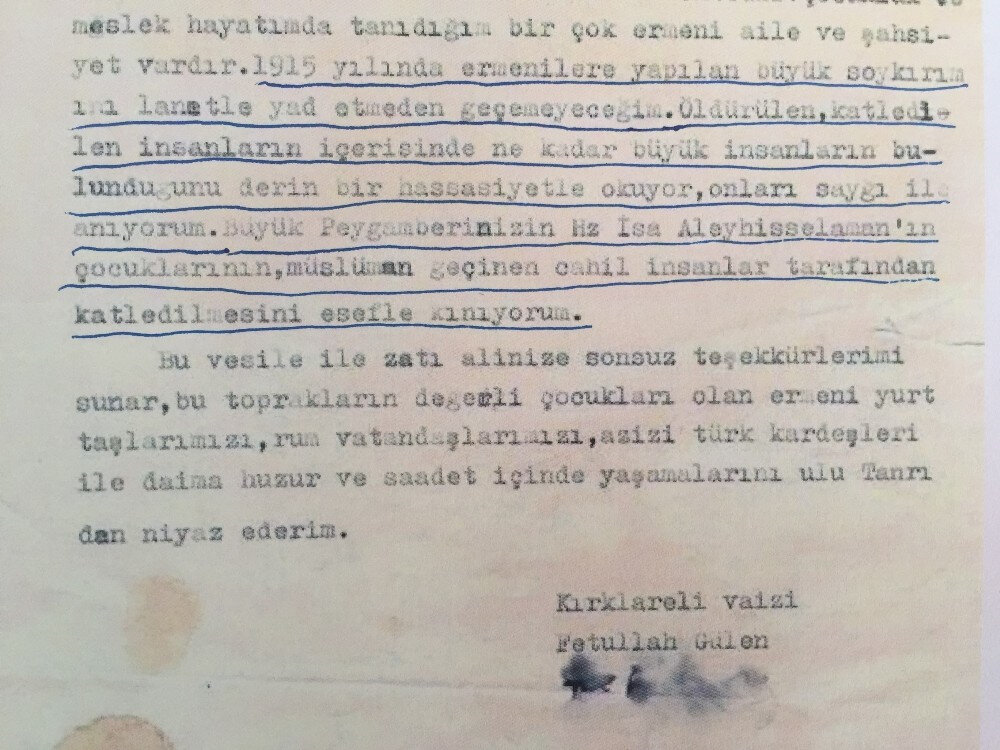 meslek hayatımda tanıdığım bir çok ermeni aile ve şahsi-
yet vardır.1915 yılında ermenilere yapılan büyük soykırım
ını lanetle yad etmeden geçemeyeceğim.Öldürülen,katledi-
len insanların içerisinde ne kadar büyük insanların bu-
lundugunu derin bir hassasiyetle okuyor,onları saygı ile
anıyorum.Büyük Peygamberinizin Hz İsa Aleyhisselaman'ın
çocuklarının,müslüman geçinen cahil insanlar tarafından
katledilmesini esefle kınıyorum.
Bu vesile ile zatı alinize sonsuz teşekkürlerimi
sunar,bu toprakların degerli çocukları olan ermeni yurt
taşlarımızı,rum vatandaşlarımızı,azizi türk kardeşleri
ile daima huzur ve saadet içinde yaşamalarını ulu Tanrı
dan niyaz ederim.
Kırklareli vaizi
Fetullah Gülen